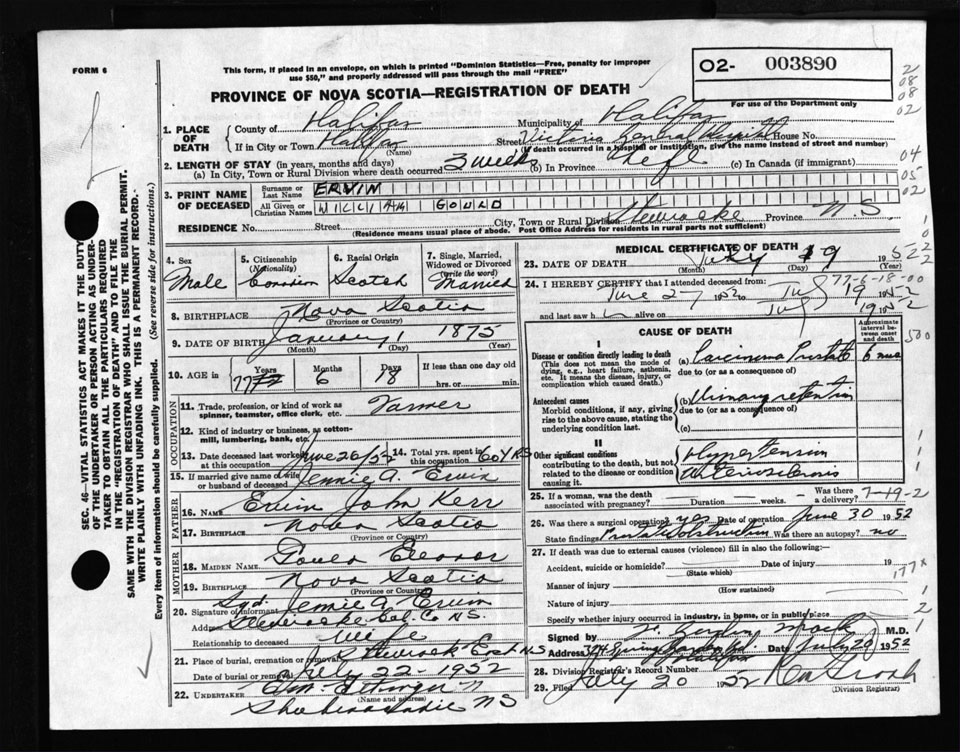 FORM 6
This form, if placed in an envelope, on which is printed "Dominion Statistics—Free, penalty for improper
use $50," and properly addressed will pass through the mail "FREE"
O2- 003890
For use of the Department only
PROVINCE OF NOVA SCOTIA—REGISTRATION OF DEATH
1. PLACE OF DEATH
County of Halifax Municipality of Halifax
If in City or Town Halifax Street Victoria General Hospital House No.
(Name) (If death occurred in a hospital or institution, give the name instead of street and number)
2. LENGTH OF STAY (in years, months and days)
(a) In City, Town or Rural Division where death occurred 3 weeks (b) In Province Life (c) In Canada (if immigrant)
3. PRINT NAME OF DECEASED
Surname or Last Name ERVIN
All Given or Christian Names WILLIAM GOULD
RESIDENCE No. Street City, Town or Rural Division Stewiacke Province N.S.
(Residence means usual place of abode. Post Office Address for residents in rural parts not sufficient)
4. Sex Male
5. Citizenship (Nationality) Canadian
6. Racial Origin Scotch
7. Single, Married, Widowed or Divorced (write the word) Married
8. BIRTHPLACE Nova Scotia
(Province or Country)
9. DATE OF BIRTH January 1 1875
(Month) (Day) (Year)
10. AGE Years 77 Months 6 Days 18 If less than one day old
hrs. or min.
OCCUPATION
11. Trade, profession, or kind of work as spinner, teamster, office clerk, etc. Farmer
12. Kind of industry or business, as cotton-mill, lumbering, bank, etc.
13. Date deceased last worked at this occupation June 26/52 14. Total yrs. spent in this occupation 60 YRS
15. If married give name of wife or husband of deceased Jennie A. Ervin
FATHER
16. NAME Ervin John Kerr
17. BIRTHPLACE Nova Scotia
(Province or Country)
MOTHER
18. MAIDEN NAME Gould Eleanor
19. BIRTHPLACE Nova Scotia
(Province or Country)
20. Signature of informant Sgd. Jennie A. Ervin
Address Stewiacke Col. Co N.S.
Relationship to deceased wife
21. Place of burial, cremation or removal Stewiacke East N.S
Date of burial or removal July 22 1952
22. UNDERTAKER
(Name and address)
Shubenacadie NS
MEDICAL CERTIFICATE OF DEATH
23. DATE OF DEATH July 19 1952
(Month) (Day) (Year)
24. I HEREBY CERTIFY that I attended deceased from:
June 27 1952 to July 19 1952
and last saw h alive on July 19 1952
CAUSE OF DEATH
Approximate interval between onset and death
I
Disease or condition directly leading to death
(This does not mean the mode of dying, e.g., heart failure, asthenia, etc. It means the disease, injury, or complication which caused death.)
(a) Carcinoma Prostate 6 mos
due to (or as a consequence of)
Antecedent causes
Morbid conditions, if any, giving rise to the above cause, stating the underlying condition last.
(b) Urinary retention
due to (or as a consequence of)
(c)
II
Other significant conditions
contributing to the death, but not related to the disease or condition causing it.
Hypertension
Arteriosclerosis
25. If a woman, was the death associated with pregnancy? Duration weeks. Was there a delivery?
7-19-2
26. Was there a surgical operation? yes Date of operation June 30 1952
State findings Prostatic obstruction Was there an autopsy? no
27. If death was due to external causes (violence) fill in also the following:—
Accident, suicide or homicide? Date of injury 19
(State which)
177x
Manner of injury
(How sustained)
Nature of injury
Specify whether injury occurred in industry, in home, or in public place
Signed by M.D.
Address Spring Garden Rd Halifax Date July 20 1952
28. Division Registrar's Record Number
29. Filed July 20 1952
(Division Registrar)
SEC. 46—VITAL STATISTICS ACT MAKES IT THE DUTY
OF THE UNDERTAKER OR PERSON ACTING AS UNDER-
TAKER TO OBTAIN ALL THE PARTICULARS REQUIRED
IN THE "REGISTRATION OF DEATH" AND TO FILE THE
SAME WITH THE DIVISION REGISTRAR WHO SHALL ISSUE THE BURIAL PERMIT.
WRITE PLAINLY WITH UNFADING INK. THIS IS A PERMANENT RECORD.
Every item of information should be carefully supplied. (See reverse side for instructions.)